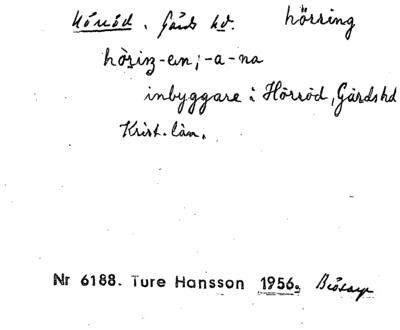 Hörröd. Gärds hd. hörring
hö̀riŋ-en; -a-na
inbyggare i Hörröd, Gärds hd
Krist. län.
Nr 6188. Ture Hansson 1956.